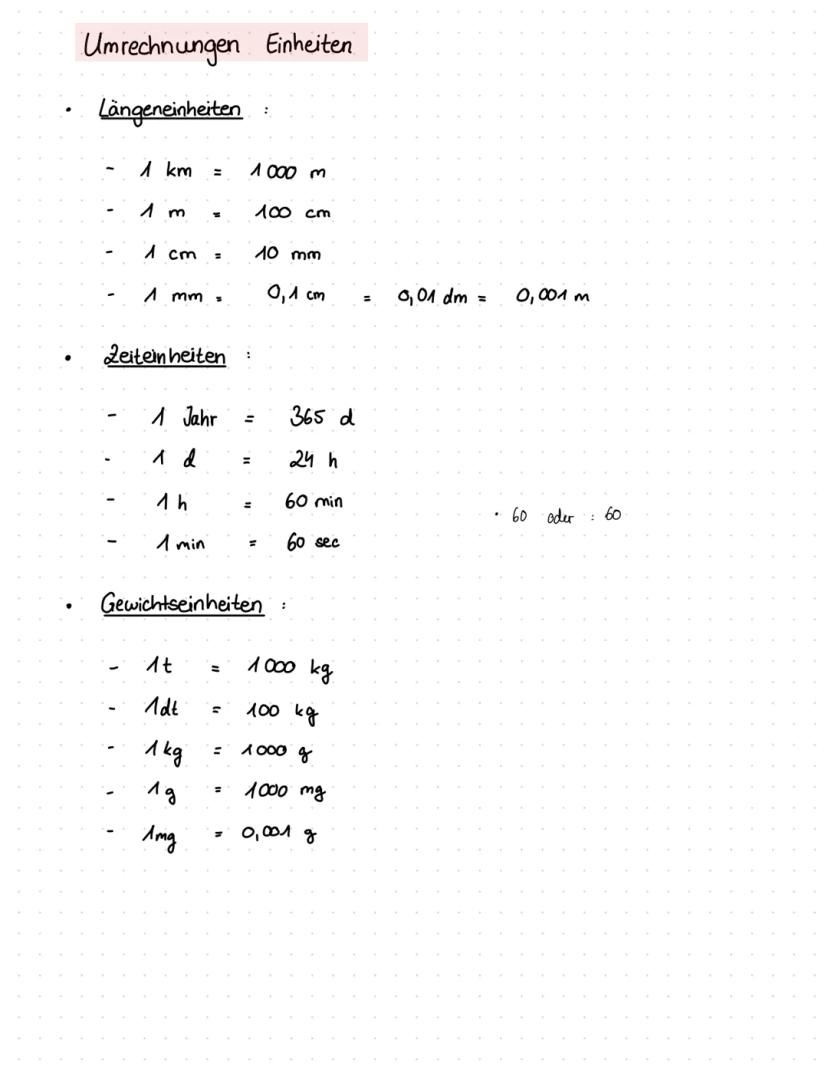 Umrechnungen Einheiten
• Längeneinheiten :
- 1 km = 1000 m
- 1 m = 100 cm
- 1 cm = 10 mm
- 1 mm = 0,1 cm = 0,01 dm = 0,001 m
• Zeiteinheiten :
- 1 Jahr = 365 d
- 1 d = 24 h
- 1 h = 60 min
· 60 oder : 60
- 1 min = 60 sec
• Gewichtseinheiten :
- 1t = 1000 kg
- 1dt = 100 kg
- 1kg = 1000 g
- 1g = 1000 mg
- 1mg = 0,001 g